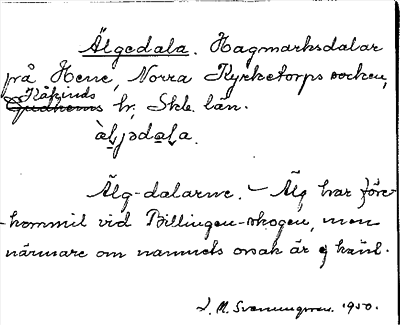 Älgedala. Hagmarksdalar
på Hene, Norra Kyrketorps socken,
Kåkinds
Gudhems hr, Skbl. län.
àl̯jəda̲l̯a.
Älg-dalarne. – Älg har före-
kommit vid Billingen-skogen, men
närmare om namnets orsak är ej känt.
L. M. Svenungsson. 1950.